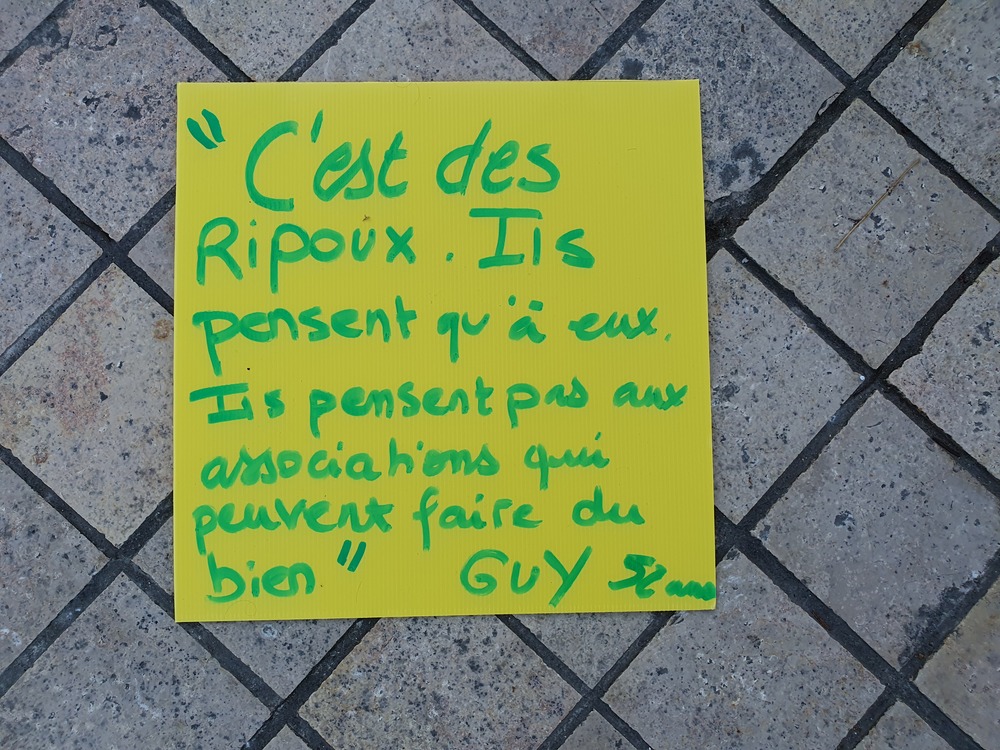 "C'est des
Ripoux. Ils
pensent qu'à eux.
Ils pensent pas aux
associations qui
peuvent faire du
bien" GUY 52 ans